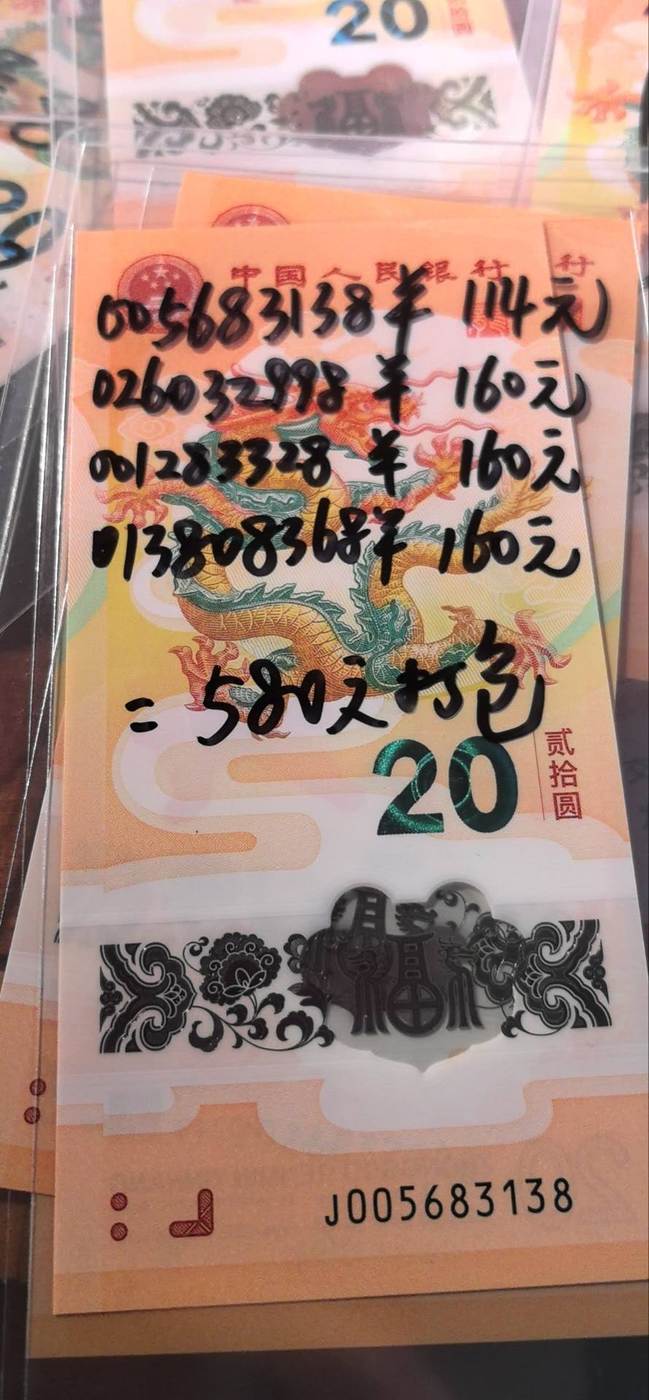 20
中国人民银行
行
005683138羊 114元
026032998羊 160元
001283328羊 160元
013808368羊 160元
=580元打包
20
贰拾圆
福
J005683138